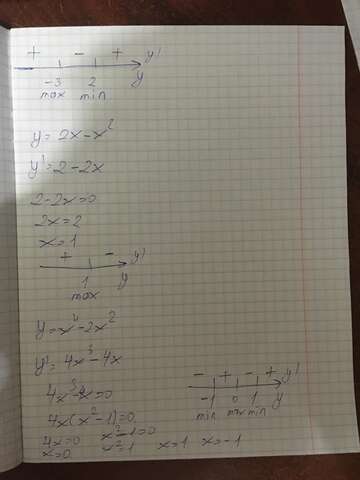 + - + y'
-3 2 y
max min
y = 2x - x²
y' = 2 - 2x
2 - 2x = 0
2x = 2
x = 1
+ - y'
1 y
max
y = x⁴ - 2x²
y' = 4x³ - 4x
4x³ - 4x = 0
4x(x² - 1) = 0
4x = 0 x² - 1 = 0
x = 0 x² = 1 x = 1 x = -1
- + - + y'
-1 0 1 y
min max min